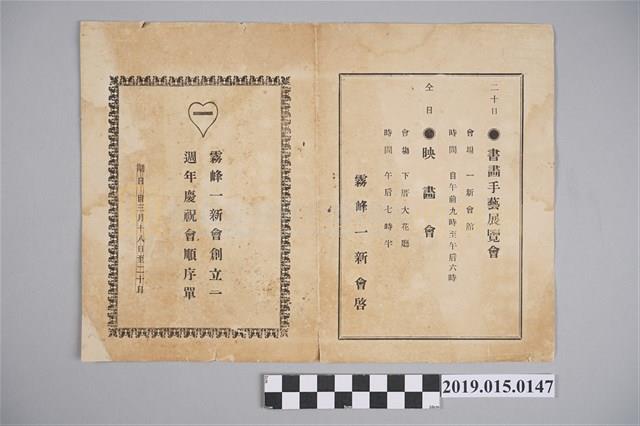 二十日
●書畵手藝展覽會
會塲 一新會館
時間 自午前九時至午后六時
仝日
●映畵會
會塲 下厝大花廳
時間 午后七時半
霧峰一新會啓
一
霧峰一新會創立二
週年慶祝會順序單
期日自三月十八日至二十日
2019.015.0147